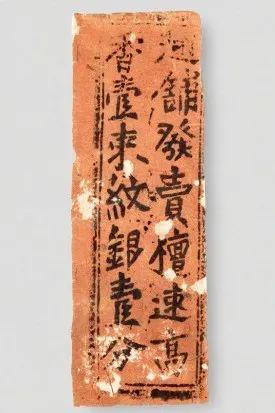 舖發賣檀速高
香壹束紋銀壹分